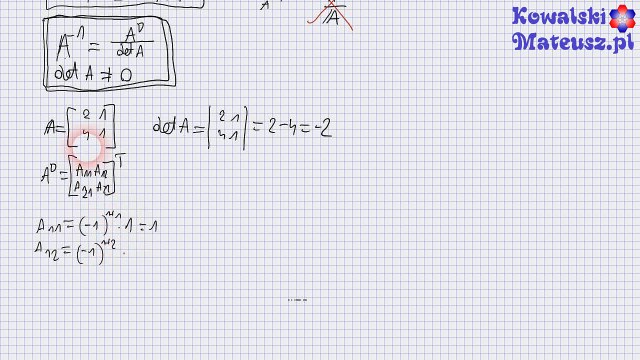 Kowalski
Mateusz.pl
A
A
A⁻¹ = Aᴰ / det A
det A ≠ 0
A = [2 1; 4 1] det A = |2 1; 4 1| = 2 - 4 = -2
Aᴰ = [A₁₁ A₁₂; A₂₁ A₂₂]ᵀ
A₁₁ = (-1)¹⁺¹ · 1 = 1
A₁₂ = (-1)¹⁺² ·